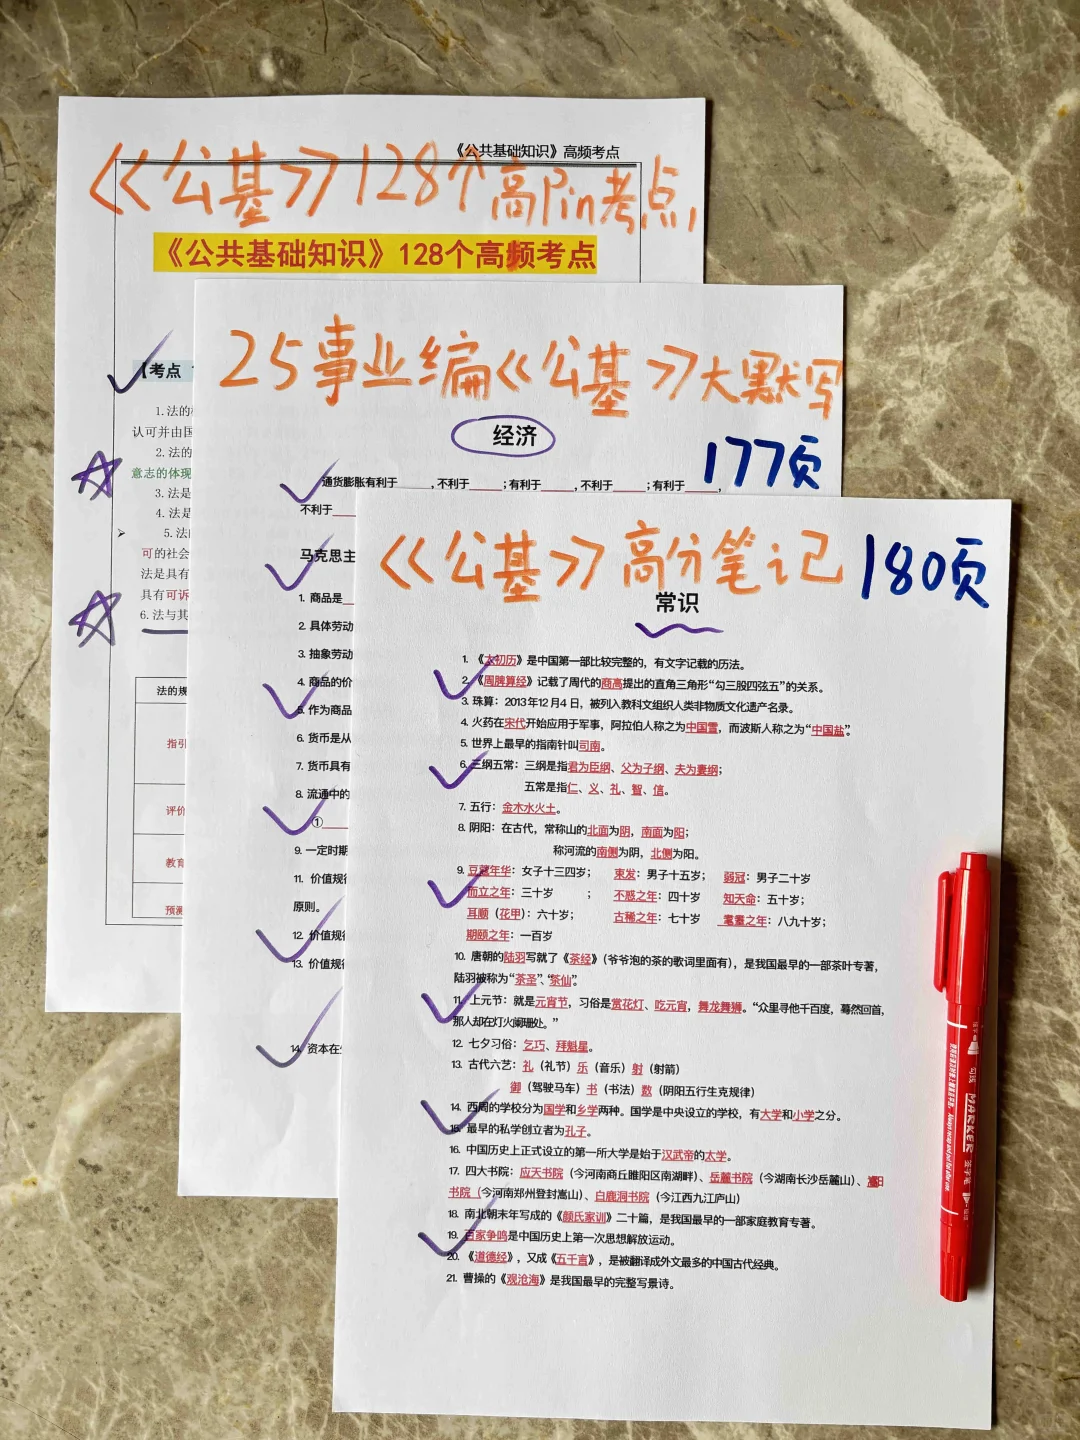 《公共基础知识》高频考点
《公基》128个高Pin考点,
《公共基础知识》128个高频考点
【考点
1.法的
认可并由国
2.法的
意志的体现
3.法是
4.法是
5.法
可的社会
法是具有
具有可诉
6.法与其
法的规
指引
评价
教育
预测
25事业编《公基》大默写
177页
经济
通货膨胀有利于______,不利于______;有利于______,不利于______;有利于______,
不利于____
马克思主
1. 商品是__
2. 具体劳动
3. 抽象劳动
4. 商品的价
5. 作为商品
6. 货币是从
7. 货币具有
8. 流通中的
①____
9. 一定时期
11. 价值规律
原则。
12. 价值规律
13. 价值规律
14. 资本在
《公基》高分笔记 180页
常识
1. 《太初历》是中国第一部比较完整的，有文字记载的历法。
2. 《周脾算经》记载了周代的商高提出的直角三角形“勾三股四弦五”的关系。
3. 珠算：2013年12月4日，被列入教科文组织人类非物质文化遗产名录。
4. 火药在宋代开始应用于军事，阿拉伯人称之为中国雪，而波斯人称之为“中国盐”。
5. 世界上最早的指南针叫司南。
6. 三纲五常：三纲是指君为臣纲、父为子纲、夫为妻纲；
五常是指仁、义、礼、智、信。
7. 五行：金木水火土。
8. 阴阳：在古代，常称山的北面为阴，南面为阳；
称河流的南侧为阴，北侧为阳。
9. 豆蔻年华：女子十三四岁； 束发：男子十五岁； 弱冠：男子二十岁
而立之年：三十岁 ； 不惑之年：四十岁 知天命：五十岁；
耳顺（花甲）：六十岁； 古稀之年：七十岁 耄耋之年：八九十岁；
期颐之年：一百岁
10. 唐朝的陆羽写就了《茶经》（爷爷泡的茶的歌词里面有），是我国最早的一部茶叶专著，
陆羽被称为“茶圣”、“茶仙”。
11. 上元节：就是元宵节，习俗是赏花灯、吃元宵，舞龙舞狮。“众里寻他千百度，蓦然回首，
那人却在灯火阑珊处。”
12. 七夕习俗：乞巧、拜魁星。
13. 古代六艺：礼（礼节）乐（音乐）射（射箭）
御（驾驶马车）书（书法）数（阴阳五行生克规律）
14. 西周的学校分为国学和乡学两种。国学是中央设立的学校，有大学和小学之分。
15. 最早的私学创立者为孔子。
16. 中国历史上正式设立的第一所大学是始于汉武帝的太学。
17. 四大书院：应天书院（今河南商丘睢阳区南湖畔）、岳麓书院（今湖南长沙岳麓山）、嵩阳
书院（今河南郑州登封嵩山）、白鹿洞书院（今江西九江庐山）
18. 南北朝末年写成的《颜氏家训》二十篇，是我国最早的一部家庭教育专著。
19. 百家争鸣是中国历史上第一次思想解放运动。
20. 《道德经》，又成《五千言》，是被翻译成外文最多的中国古代经典。
21. 曹操的《观沧海》是我国最早的完整写景诗。
MARKER